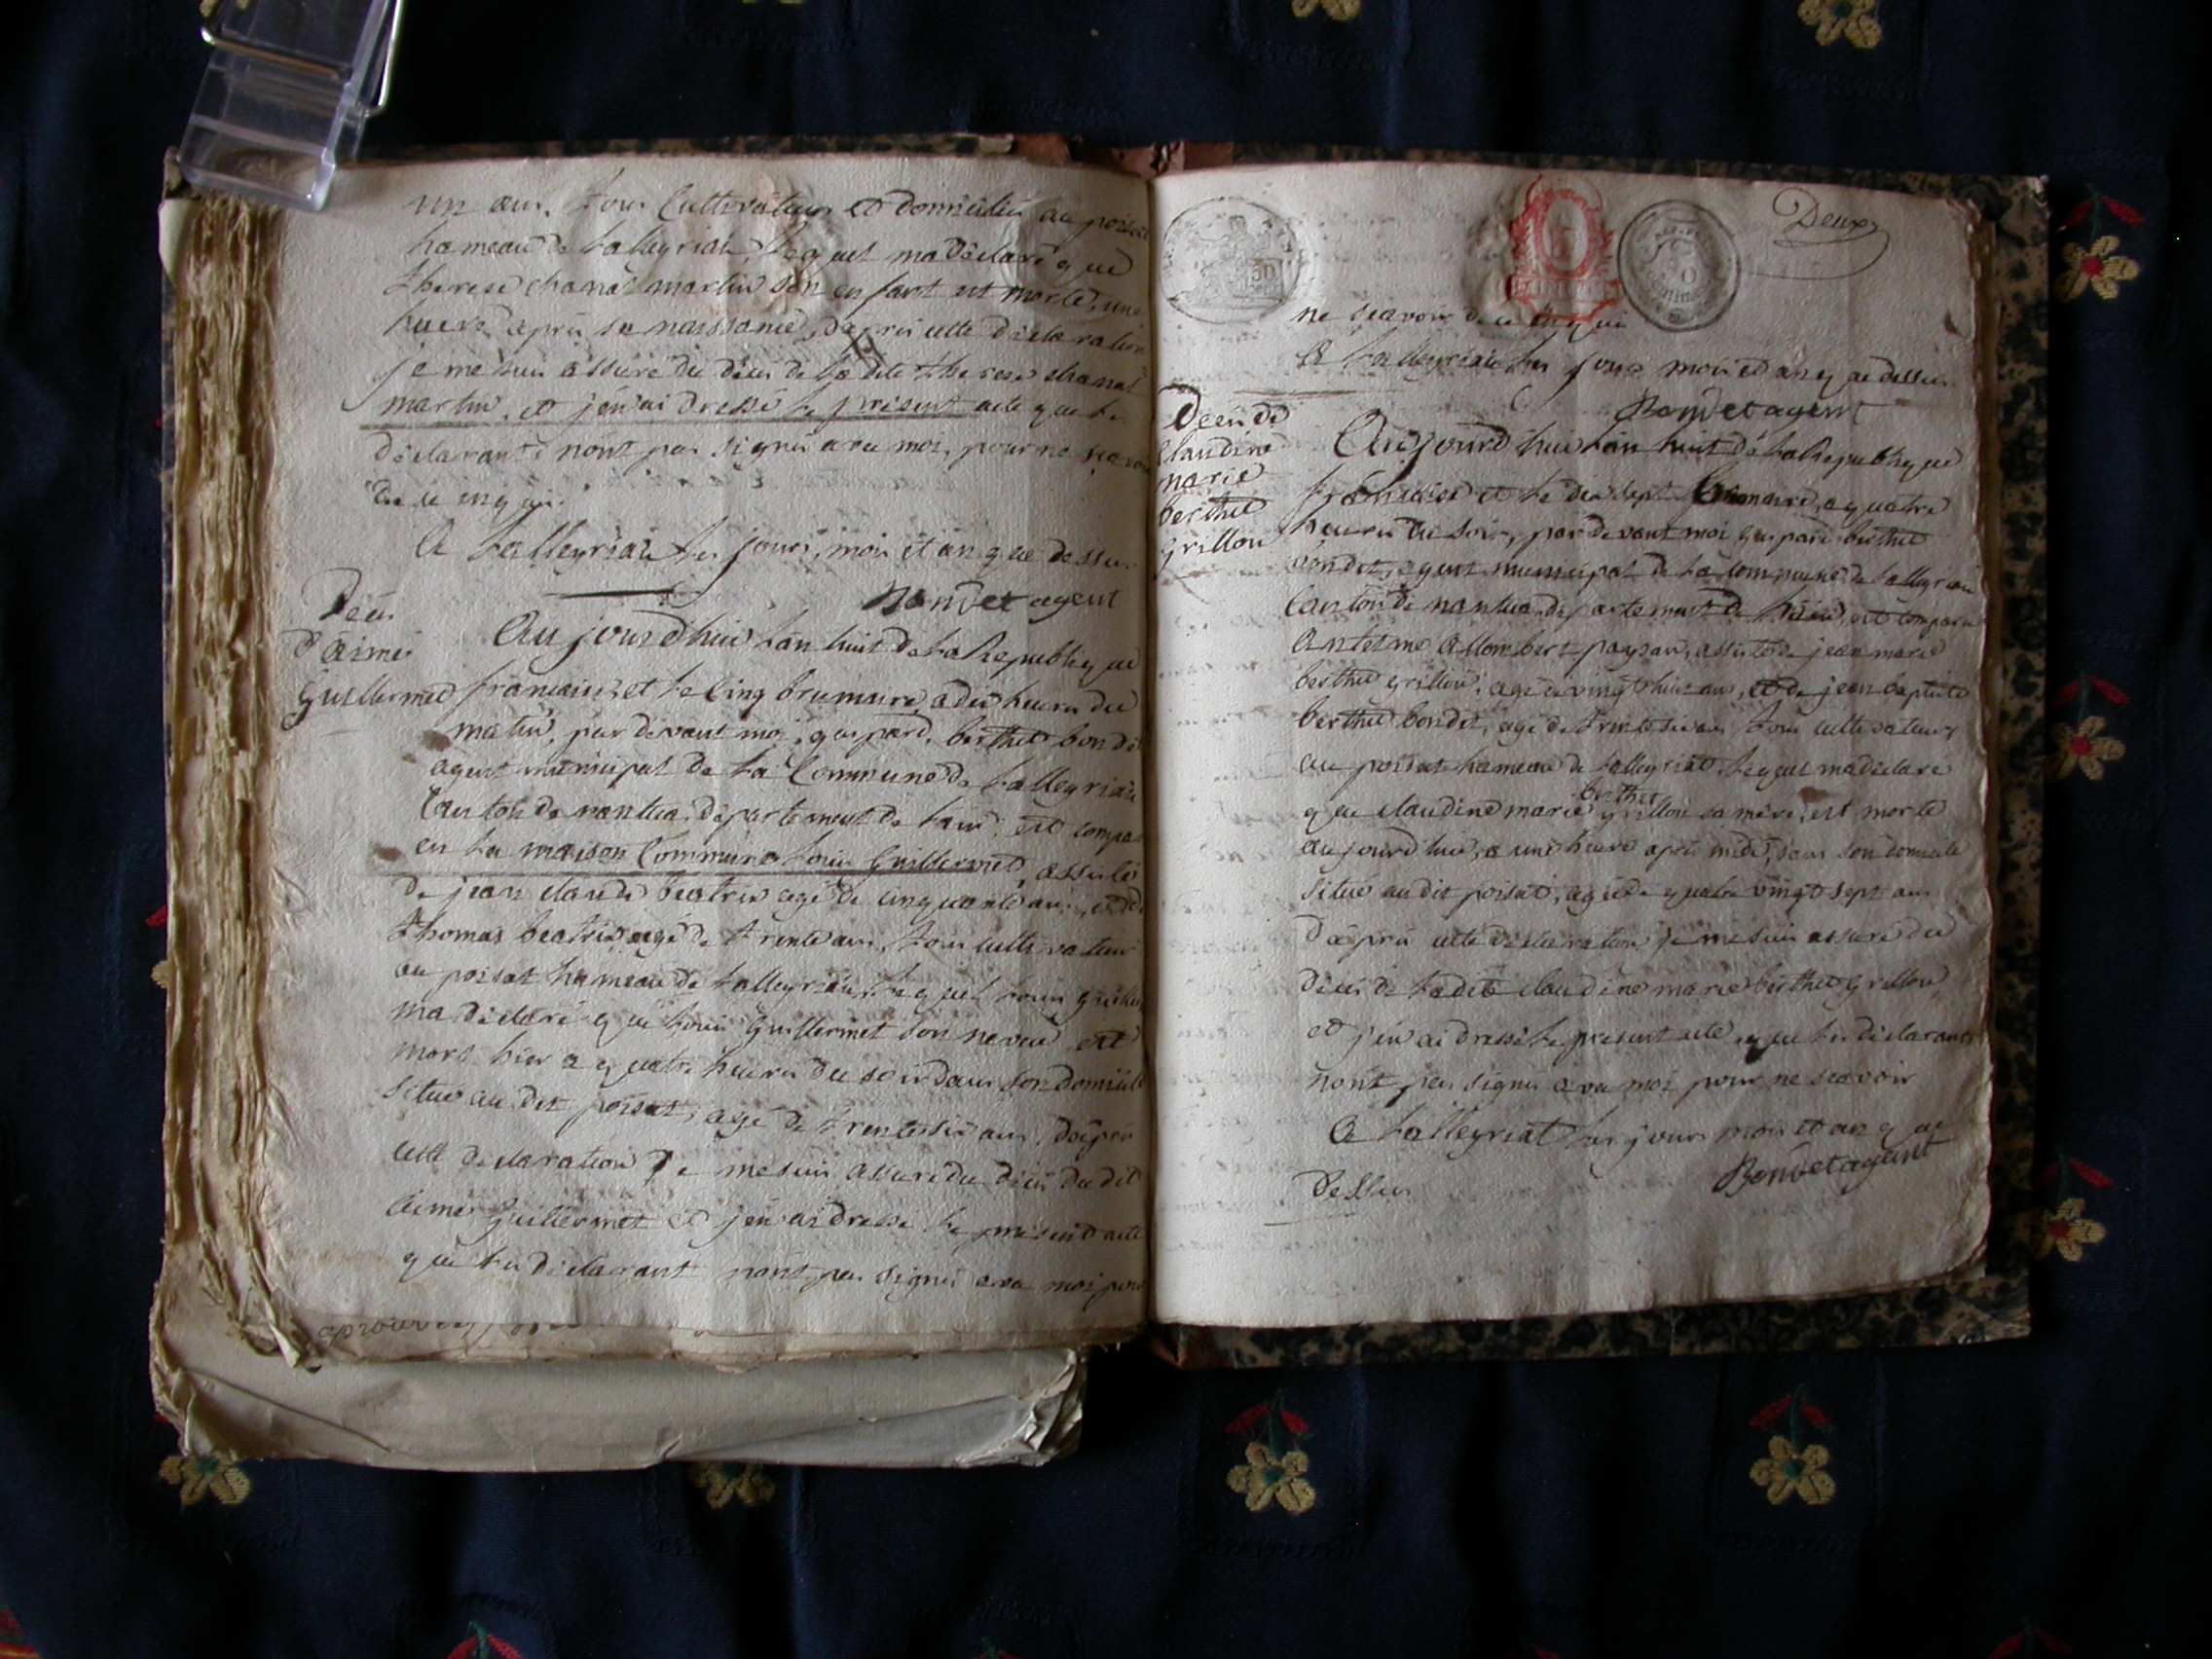 un ans, tous Cultivateurs et domicilies au poisat
hameau de talleyriat, lequel ma déclaré que
therese chanal martin son enfant est morte, une
heure après sa naissance, d'après cette déclaration
je me suis assuré du décès de la dite therese chanal
martin, et j'en ai dressé le présent acte que les
déclarants n'ont pas signés avec moi, pour ne sçavoir
de ce enquis.
A talleyriat les jours, mois et an que dessus
Bondet agent
Décès
d'aimé
Guillermet
Aujourd'huis l'an huit de la Republique
francaise et le cinq brumaire, a dix heures du
matin, par devant moi, gaspard, berthet bondet
agent municipal de la Commune de talleyriat
Canton de nantua, département de l'ain, est comparu
en la maison Commune louis Guillermet, assisté
de jean claude beatrix agé de cinquante ans, et de
thomas beatrix agé de trente ans, tous cultivateurs
au poisat hameau de talleyriat, lequel louis guillermet
ma déclaré que louis Guillermet son neveu est
mort hier a quatre heures du soir dans son domicile
situé au dit poisat, agé de trente six ans, d'après
cette déclaration Je me suis assuré du décès du dit
aimé Guillermet et j'en ai dressé le présent acte
que les déclarant n'ont pas signés avec moi pour
aprouvé
Deux
ne sçavoir de ce enquis
A talleyriat les jours mois et an que dessus
Bondet agent
Décès de
Claudine
marie
berthet
grillon
Aujourd'huis l'an huit de la Republique
francaise et le dix sept brumaire, a quatre
heures du soir, par devant moi gaspard berthet
bondet, agent municipal de la commune de talleyriat
Canton de nantua, département de l'ain, est comparu
Antelme Allombert paysan, assisté de jean marie
berthet grillon, agé de vingt huit ans, et de jean baptiste
berthet bondet, agé de trente six ans tous cultivateurs
au poisat hameau de talleyriat, lequel ma déclaré
que claudine marie berthet grillon sa mère, est morte
aujourd'huis, a une heure après midi, dans son domicile
situé au dit poisat, agée de quatre vingt sept ans
d'après cette déclaration je me suis assuré du
décès de la dite claudine marie berthet Grillon
et j'en ai dressé le present acte, que les déclarants
n'ont pas signés avec moi pour ne sçavoir
A talleyriat les jours mois et an que
dessus
Bondet agent